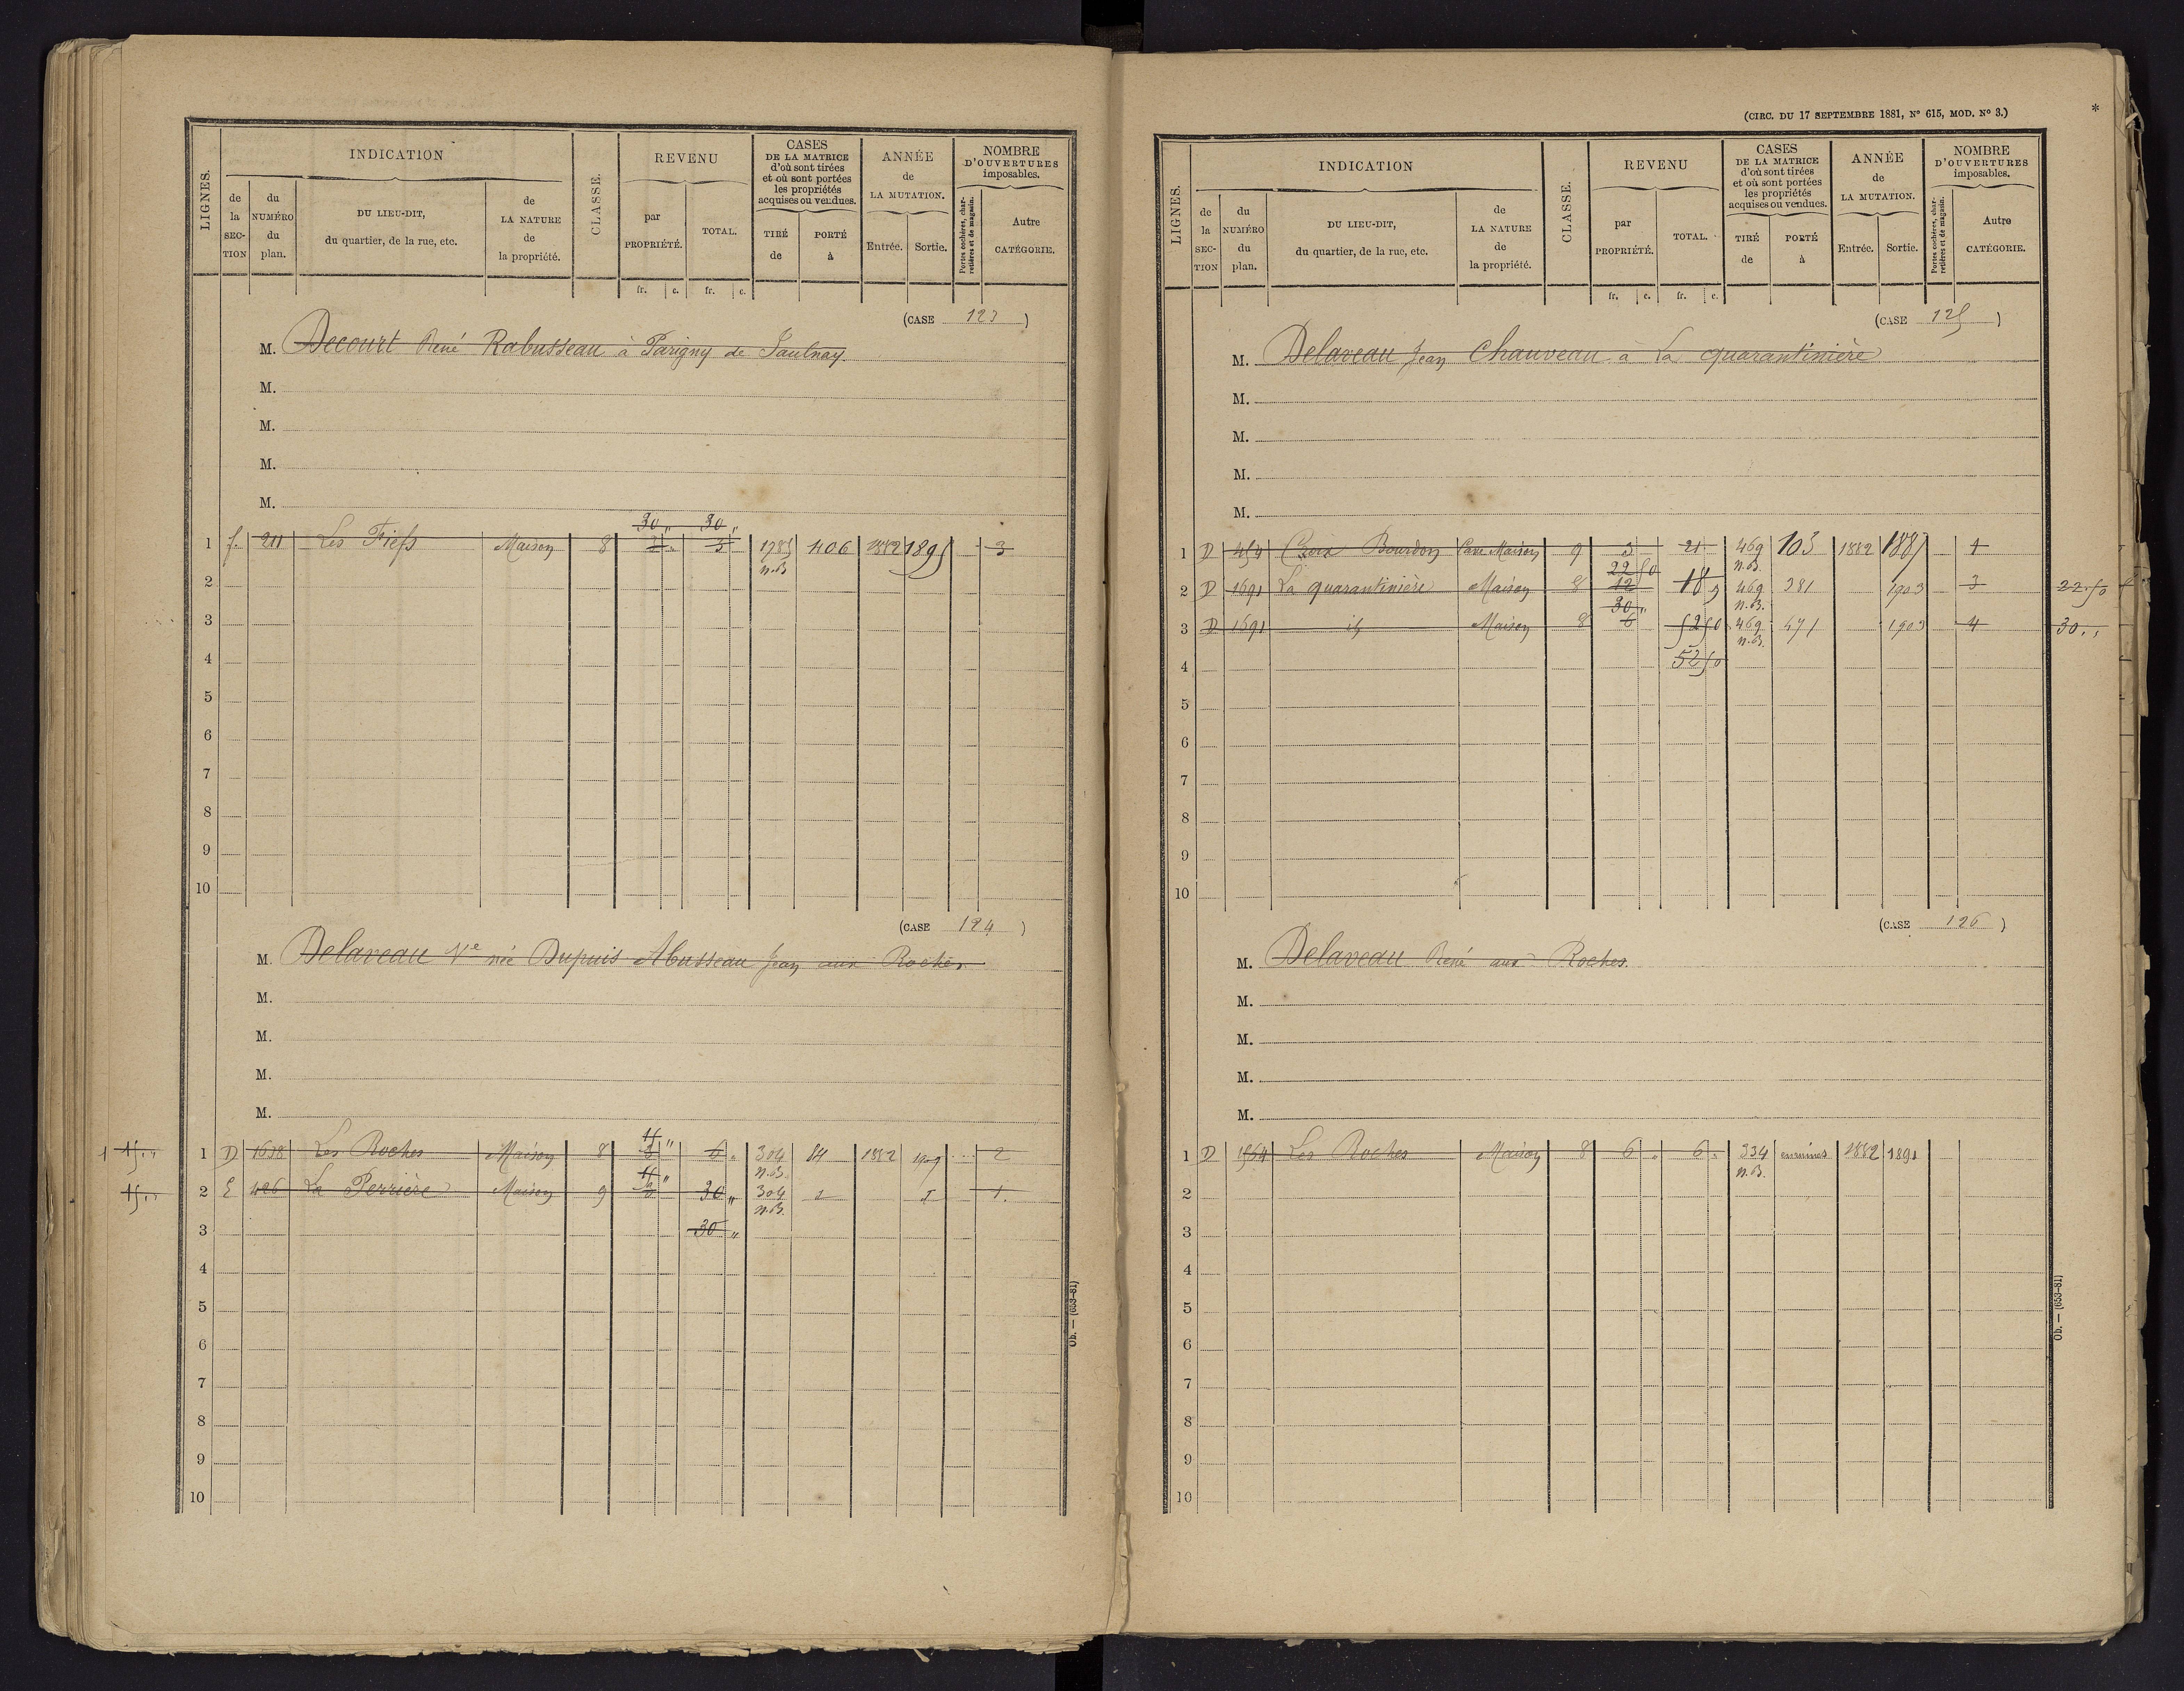 LIGNES.
INDICATION
de la SECTION
du NUMÉRO du plan.
DU LIEU-DIT, du quartier, de la rue, etc.
de LA NATURE de la propriété.
CLASSE.
REVENU
par PROPRIÉTÉ.
TOTAL.
fr. c. fr. c.
CASES DE LA MATRICE d'où sont tirées et où sont portées les propriétés acquises ou vendues.
TIRÉ de
PORTÉ à
ANNÉE de LA MUTATION.
Entrée. Sortie.
NOMBRE D'OUVERTURES imposables.
Portes cochères, charretières et de magasin.
Autre CATÉGORIE.
(CASE 123)
M. Decourt René Rabusseau à Parigny de Jaulnay.
M.
M.
M.
M.
30 " 30 "
1 f. 211 Les Fiefs Maison 8 3 406 1882 1895 3
n.B.
2
3
4
5
6
7
8
9
10
(CASE 124)
M. Delaveau Ve née Dupuis Abusseau Jean aux Roches
M.
M.
M.
M.
15 "
1 15 " 1 D 1638 Les Roches Maison 8 3 6 " 304 84 1882 1909 2
15 " n.B.
15 " 2 E 426 La Perrière Maison 9 30 " 304 1.
n.B.
3 30 "
4
5
6
7
8
9
10
Ob. — (653-81)
(CIRC. DU 17 SEPTEMBRE 1881, No 615, MOD. No 3.)
*
LIGNES.
INDICATION
de la SECTION
du NUMÉRO du plan.
DU LIEU-DIT, du quartier, de la rue, etc.
de LA NATURE de la propriété.
CLASSE.
REVENU
par PROPRIÉTÉ.
TOTAL.
fr. c. fr. c.
CASES DE LA MATRICE d'où sont tirées et où sont portées les propriétés acquises ou vendues.
TIRÉ de
PORTÉ à
ANNÉE de LA MUTATION.
Entrée. Sortie.
NOMBRE D'OUVERTURES imposables.
Portes cochères, charretières et de magasin.
Autre CATÉGORIE.
(CASE 125)
M. Delaveau Jean Chauveau à La quarantinière
M.
M.
M.
M.
1 D 454 Croix Bourdon Cave Maison 9 3 21 469 103 1882 1887 1
22 50 n.B.
2 D 1691 La quarantinière Maison 8 12 18 " 469 381 1903 3 22.50
30 " n.B.
3 D 1691 id Maison 8 6 52 50 469 471 1903 4 30. "
n.B.
4 52 50
5
6
7
8
9
10
(CASE 126)
M. Delaveau René aux Roches.
M.
M.
M.
M.
1 D 1564 Les Roches Maison 8 6 " 6 " 334 1882 1891
n.B.
2
3
4
5
6
7
8
9
10
Ob. — (653-81)